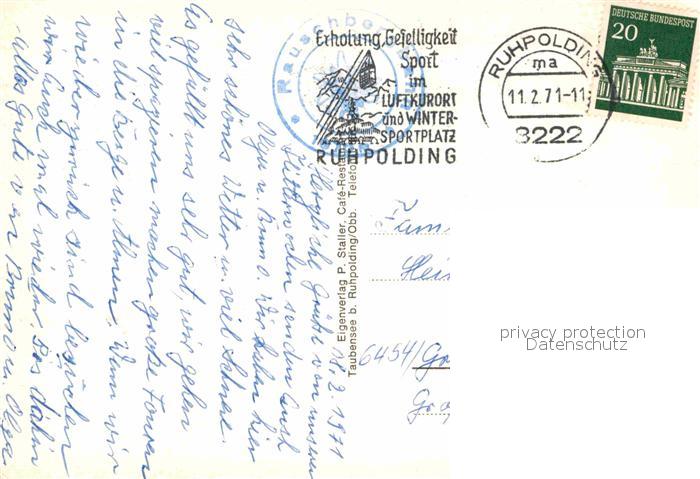 Rauschberg
Erholung, Geselligkeit
Sport
im
LUFTKURORT
und WINTER-
SPORTPLATZ
RUHPOLDING
RUHPOLDING
ma
11.2.71-11
8222
DEUTSCHE BUNDESPOST
20
Eigenverlag P. Staller, Café-Resta
Taubensee b. Ruhpolding/Obb. Telefo
11.2.1971
Herzliche Grüße von unseren
senden Euch
Olga u. Bruno. Wir haben hier
sehr schönes Wetter u. viel Schnee.
Es gefällt uns sehr gut, wir gehen
viel spazieren machen große Touren
in die Berge u. Almen. Wenn wir
wieder zurück sind besuchen
wir Euch mal wieder. Bis dahin
alles Gute von Bruno u. Olga
Fam
Hei
6454/Gro
Gro
privacy protection
Datenschutz